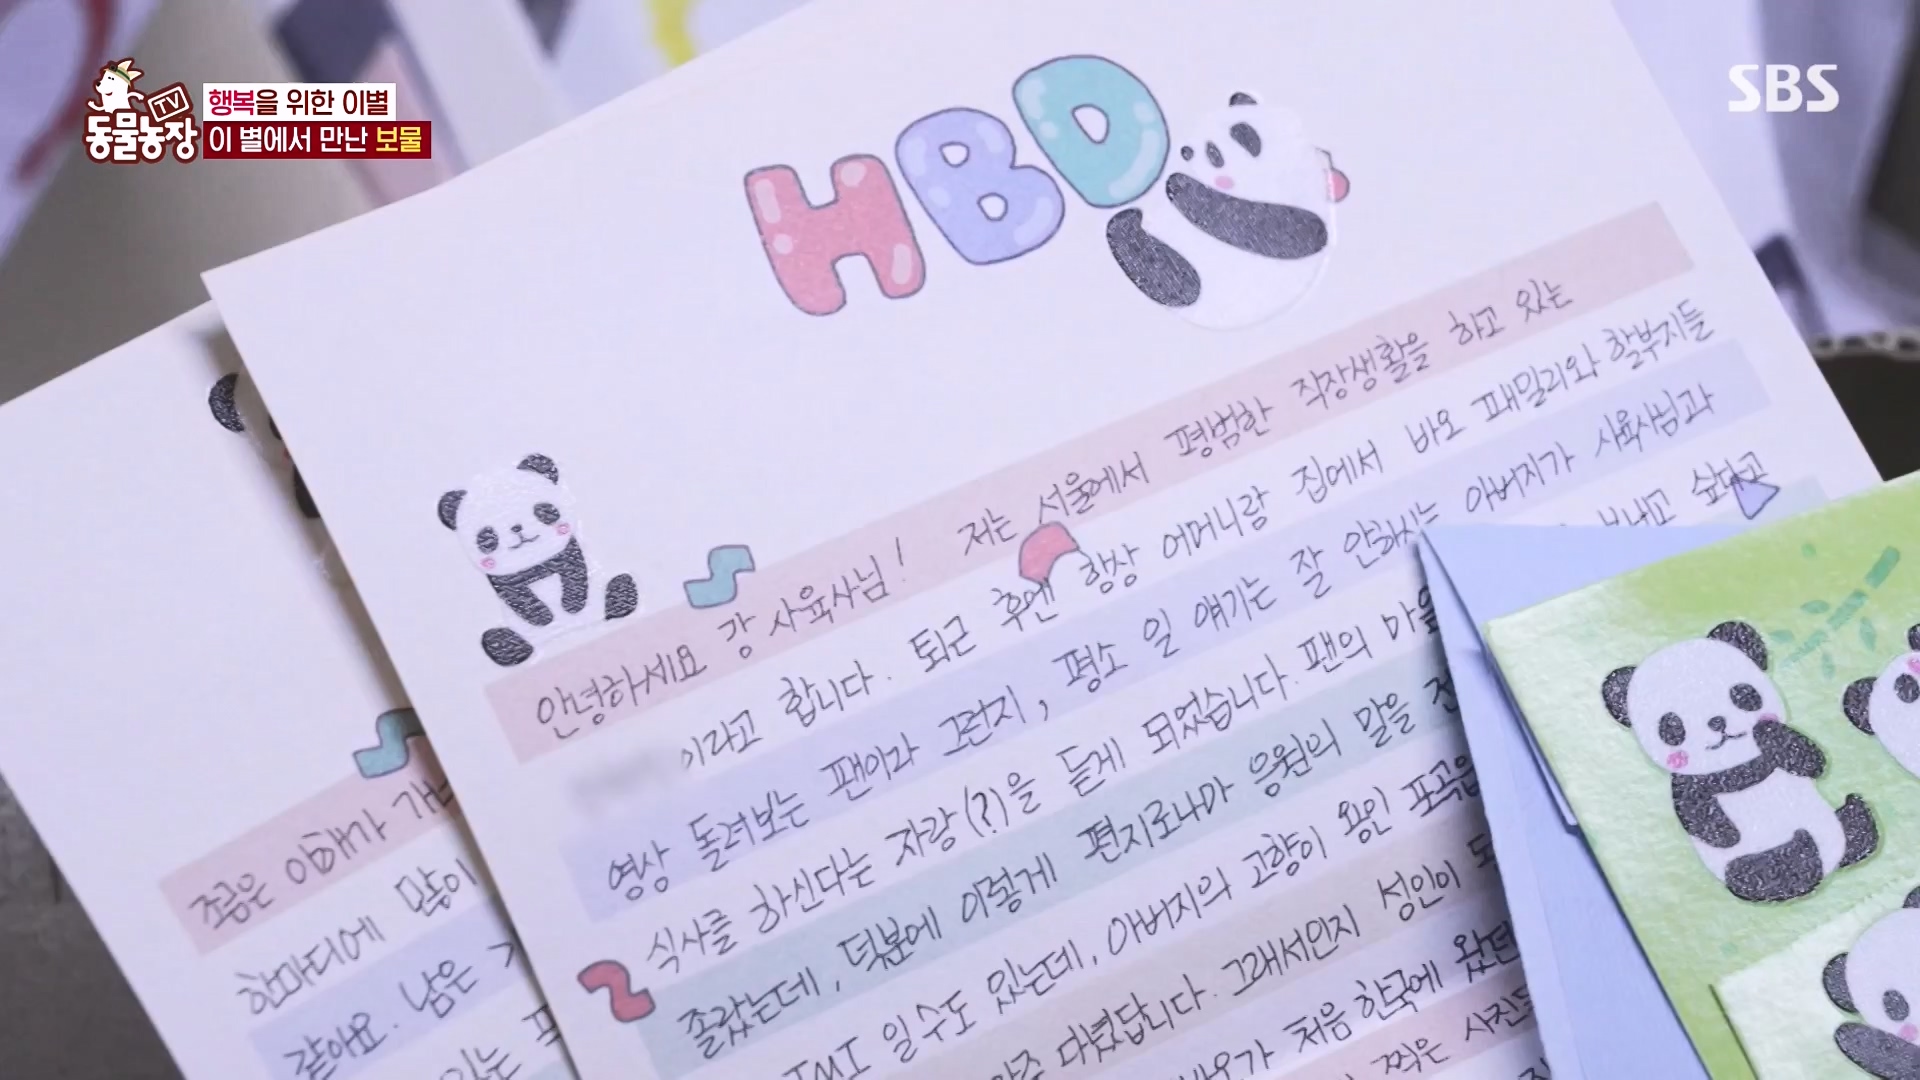 TV
동물농장
행복을 위한 이별
이 별에서 만난 보물
SBS
HBD
안녕하세요 강 사육사님! 저는 서울에서 평범한 직장생활을 하고 있는
이라고 합니다. 퇴근 후엔 항상 어머니랑 집에서 바오 패밀리와 할부지들
영상 돌려보는 팬이라 그런지, 평소 일 얘기는 잘 안하시는 아버지가 사육사님과
식사를 하신다는 자랑(?)을 듣게 되었습니다. 팬의 마음 보내고 싶다고
졸랐는데, 덕분에 이렇게 편지로나마 응원의 말을
TMI 일 수도 있는데, 아버지의 고향이 용인 포곡읍
다녔답니다. 그래서인지 성인이
처음 한국에 왔던
찍은 사진
조금은 이해가
한마디에 많이
같아요. 남은